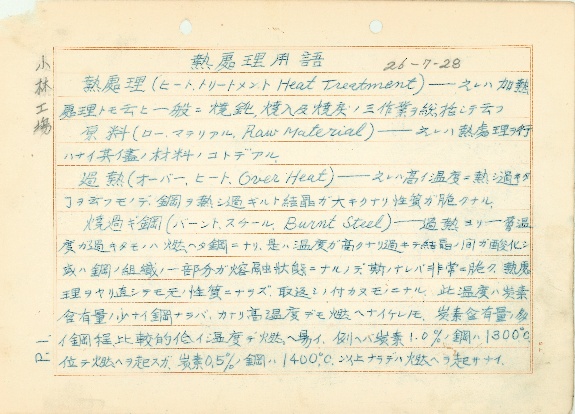 熱處理用語 26-7-28
小林工場
熱處理(ヒート、トリートメント Heat Treatment)——之レハ加熱
處理トモ云ヒ一般ニ焼鈍,焼入及焼戻ノ三作業ヲ総括シテ云フ
原料(ロー、マテリアル、Raw Material)——之レハ熱處理ヲ行
ハナイ其儘ノ材料ノコトデアル
過熱(オーバー、ヒート、Over Heat)——之レハ高イ温度ニ熱シ過キタ
ヿヲ云フモノデ、鋼ヲ熱シ過ギルト結晶ガ大キクナリ性質ガ脆クナル、
焼過ギ鋼(バーント、スチール、Burnt Steel)——過熱ヨリ一層温
度ガ過キタモノハ燃ヘタ鋼ニナリ、是ハ温度ガ高クナリ過キテ結晶ノ間ガ酸化シ
或ハ鋼ノ組織ノ一部分ガ熔融狀態ニナルノデ斯ウナレバ非常ニ脆ク、熱處
理ヲヤリ直シテモ元ノ性質ニナラズ、取返シノ付カヌモノニナル、此温度ハ炭素
含有量ノ少ナイ鋼ナラバ、カナリ高温度デモ燃ヘナイケレドモ、炭素含有量ノ多
イ鋼程比較的低イ温度デ燃ヘ易イ、例ヘバ炭素1.0%ノ鋼ハ1300°C
位デ燃ヘヲ起スガ、炭素0.5%ノ鋼ハ1400°C.以上ナラデハ燃ヘヲ起サナイ.
P. 1.